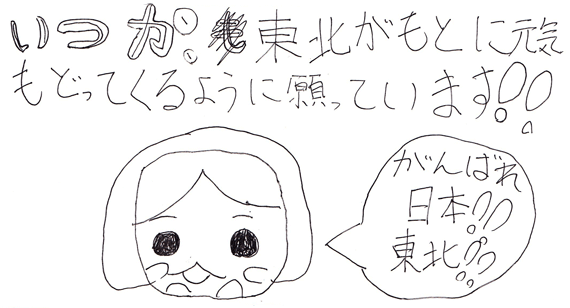 いつか。東北がもとに元気
もどってくるように願っています!!
がんばれ
日本!!
東北!!